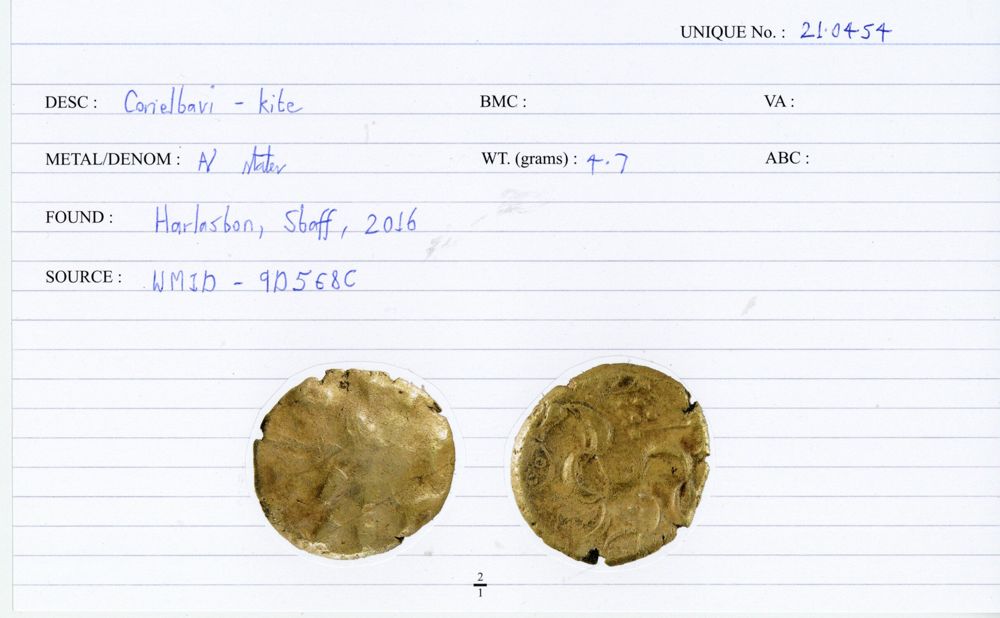 UNIQUE No. : 21.0454
DESC : Corieltavi - kite BMC : VA :
METAL/DENOM : AV stater WT. (grams) : 4.7 ABC :
FOUND : Harlaston, Staff, 2016
SOURCE : WMID - 9D5E8C
2
1